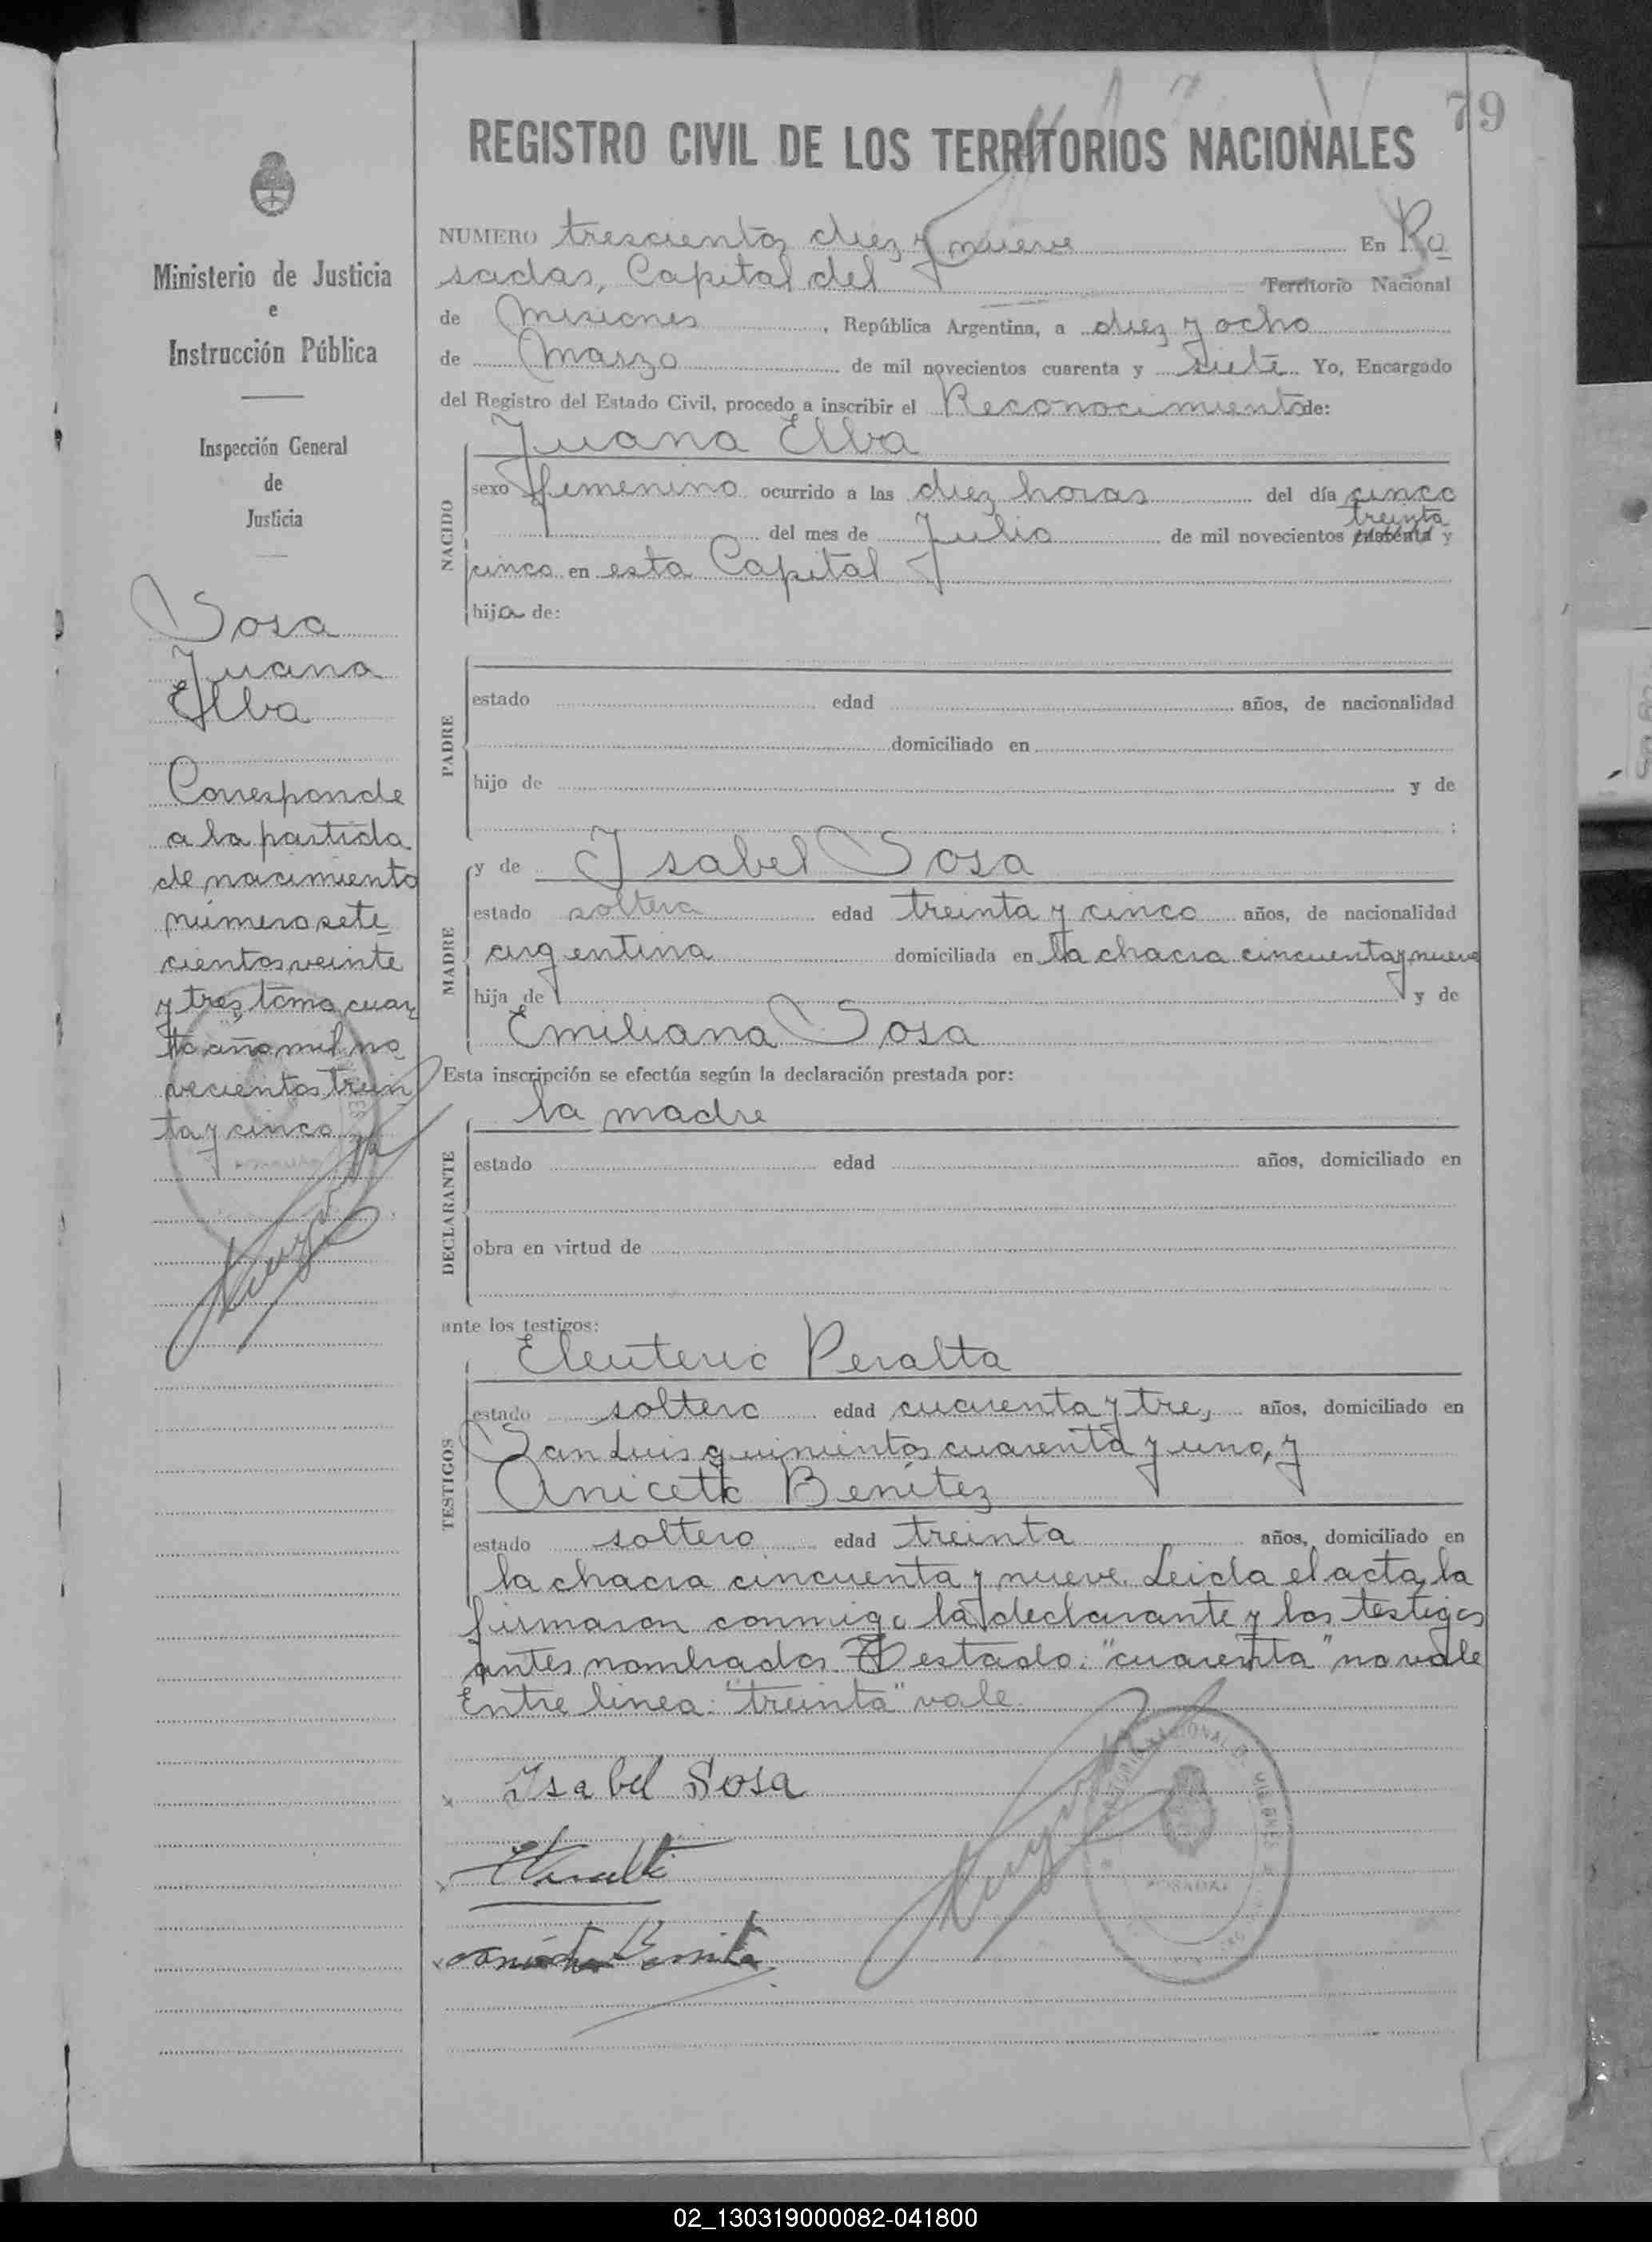 79
REGISTRO CIVIL DE LOS TERRITORIOS NACIONALES
Ministerio de Justicia
e
Instrucción Pública
Inspección General
de
Justicia
Sosa
Juana
Elba
Corresponde
a la partida
de nacimiento
número sete
cientos veinte
y tres, tomo cuar
to año mil no
vecientos trein
ta y cinco
NUMERO trescientos diez y nueve En Po
sadas, Capital del Territorio Nacional
de Misiones, República Argentina, a diez y ocho
de Marzo de mil novecientos cuarenta y siete Yo, Encargado
del Registro del Estado Civil, procedo a inscribir el Reconocimiento de:
NACIDO
Juana Elba
sexo femenino ocurrido a las diez horas del día cinco
treinta
del mes de Julio de mil novecientos cuarenta y
cinco en esta Capital
hija de:
PADRE
estado edad años, de nacionalidad
domiciliado en
hijo de y de
MADRE
y de Isabel Sosa
estado soltera edad treinta y cinco años, de nacionalidad
argentina domiciliada en la chacra cincuenta y nueve
hija de y de
Emiliana Sosa
Esta inscripción se efectúa según la declaración prestada por:
la madre
DECLARANTE
estado edad años, domiciliado en
obra en virtud de
ante los testigos:
TESTIGOS
Eleuterio Peralta
estado soltero edad cuarenta y tres años, domiciliado en
San Luis quinientos cuarenta y uno, y
Aniceto Benítez
estado soltero edad treinta años, domiciliado en
la chacra cincuenta y nueve. Leida el acta, la
firmaron conmigo la declarante y los testigos
antes nombrados. Testado: "cuarenta" no vale
Entre linea: "treinta" vale.
Isabel Sosa
POSADAS
02_130319000082-041800